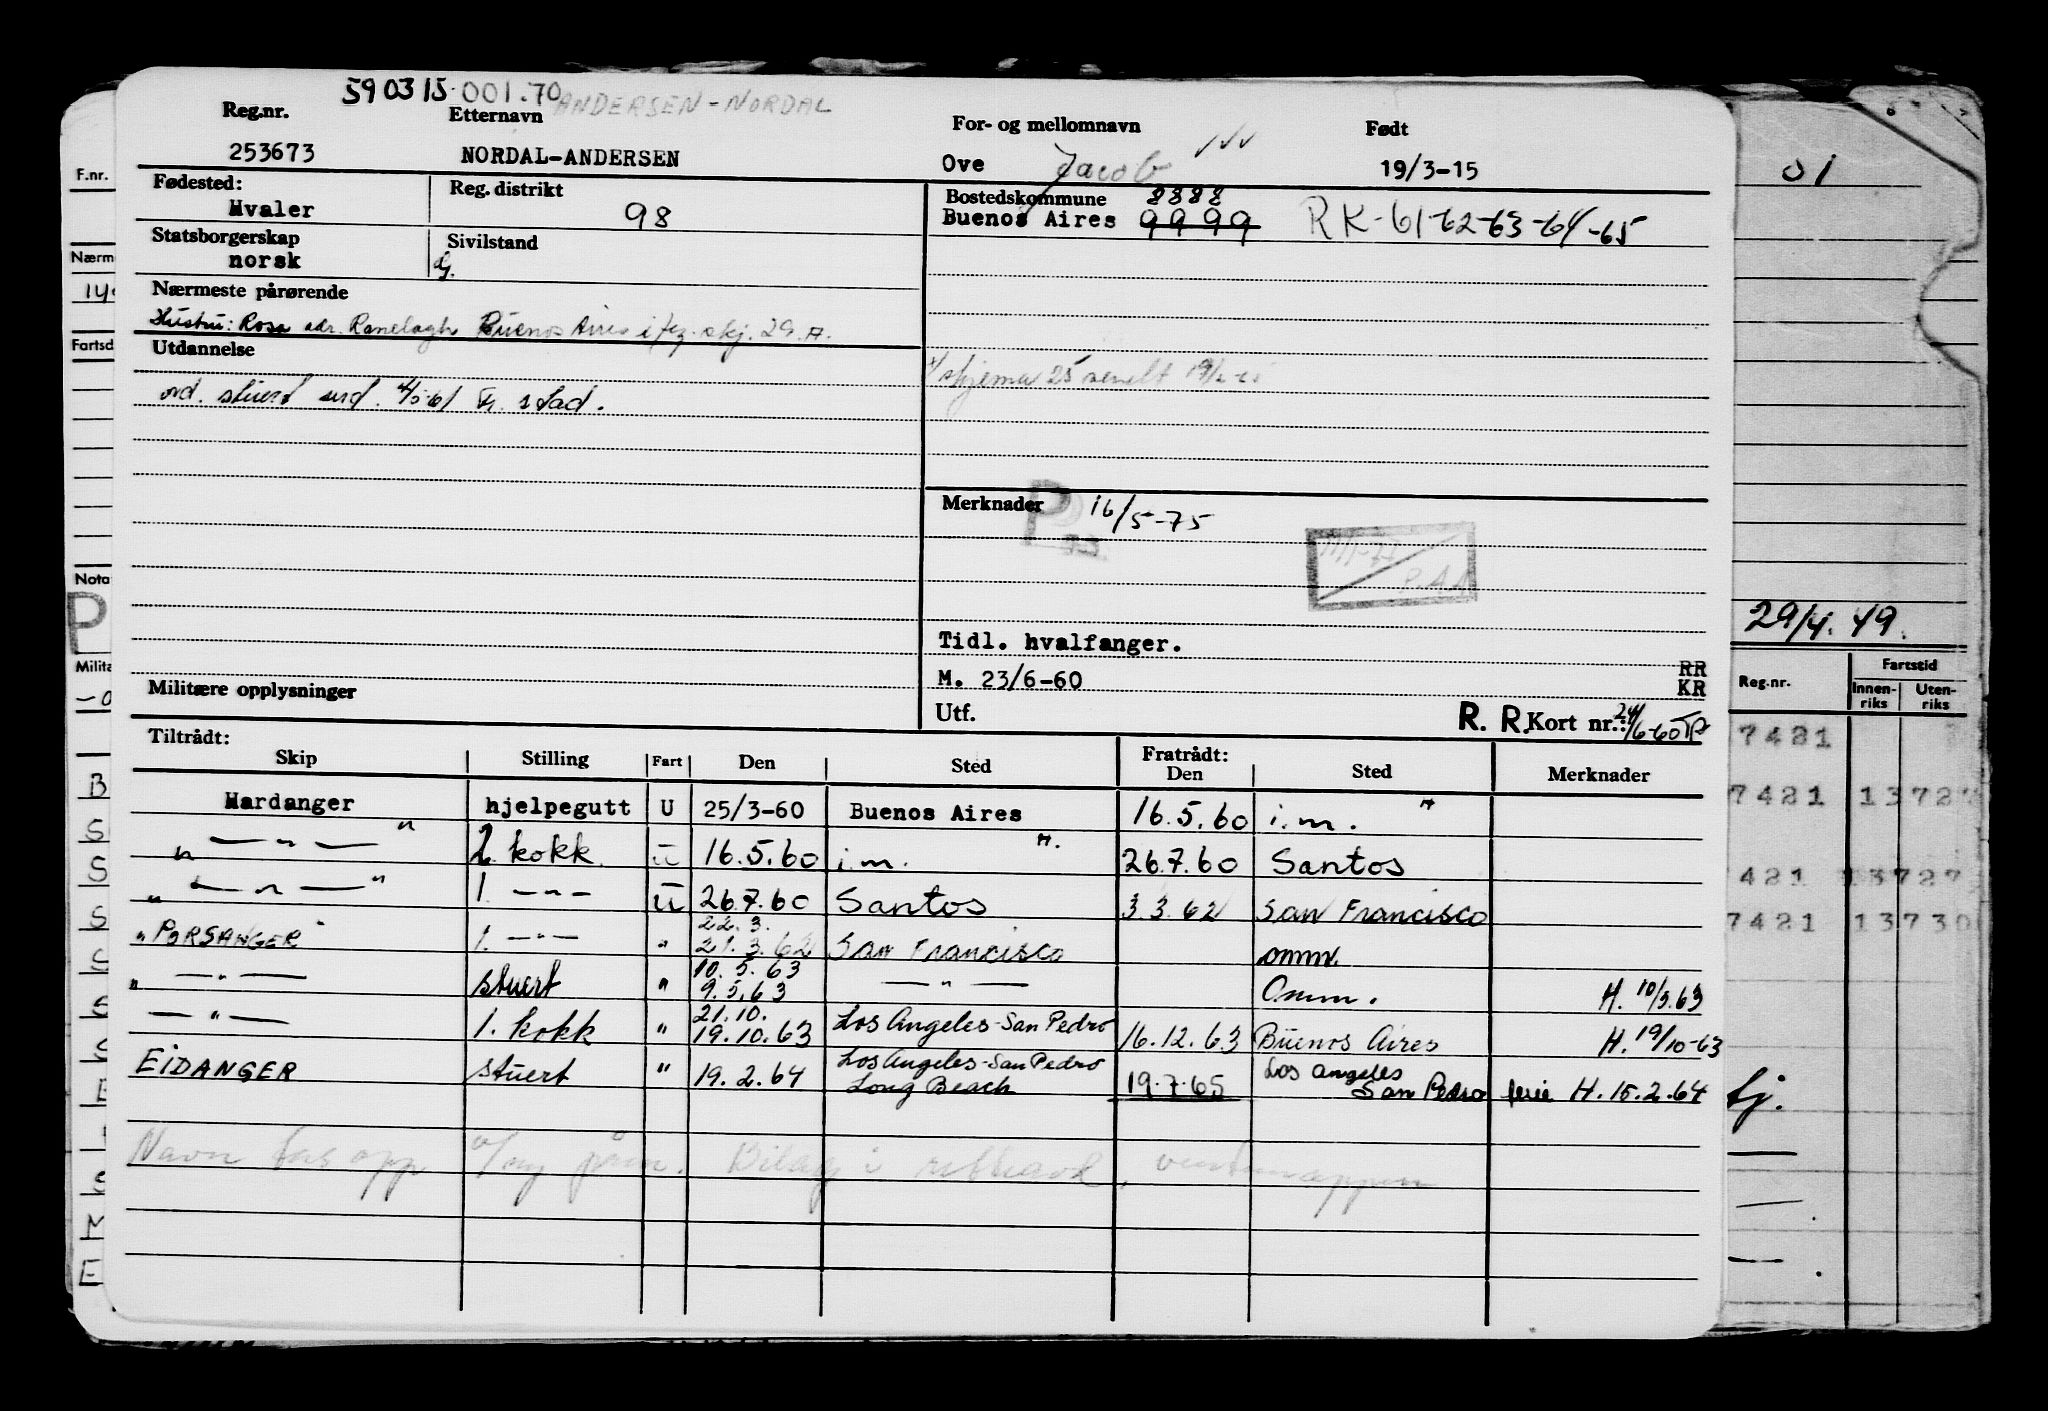 590315 001.70 ANDERSEN-NORDAL
Reg.nr. Etternavn For- og mellomnavn Født
253673 NORDAL-ANDERSEN Ove Jacob 19/3-15
Fødested: Reg. distrikt Bostedskommune 8888
Hvaler 98 Buenos Aires 9999 RK-61-62-63-64-65
Statsborgerskap Sivilstand
norsk G.
Nærmeste pårørende
Hustru: Rosa adr. Ranelagh Buenos Aires skj. 29.A.
Utdannelse
skjema 25
ord. stuert 4/5-61 Fr.stad.
Merknader 16/5-75
P
Tidl. hvalfanger.
M. 23/6-60
RR
KR
Militære opplysninger
Utf. R. R. Kort nr.: 24/6-60
Tiltrådt: Fratrådt:
Skip Stilling Fart Den Sted Den Sted Merknader
Hardanger hjelpegutt U 25/3-60 Buenos Aires 16.5.60 i.m. "
" — " — " 2. kokk U 16.5.60 i.m. " 26.7.60 Santos
" — " — " 1. — " — U 26.7.60 Santos 3.3.62 San Francisco
22.3.
" PORSANGER " 1. — " — " 21.3.62 San Francisco omm.
10.5.63
" — " — stuert " 9.5.63 — " — Omm. H. 10/5.63
21.10.
— " — 1. kokk " 19.10.63 Los Angeles-San Pedro 16.12.63 Buenos Aires H. 19/10-63
EIDANGER stuert " 19.2.64 Los Angeles-San Pedro Long Beach 19.7.65 Los Angeles San Pedro ferie H. 15.2.64
Navn
F.nr.
Nærm
Fartsd
Nota
P
Milita
B
S
S
S
S
S
S
E
M
E
01
29/4.49.
Reg.nr. Fartstid
Innenriks Utenriks
7421
7421 1372
421 1372
7421 13730